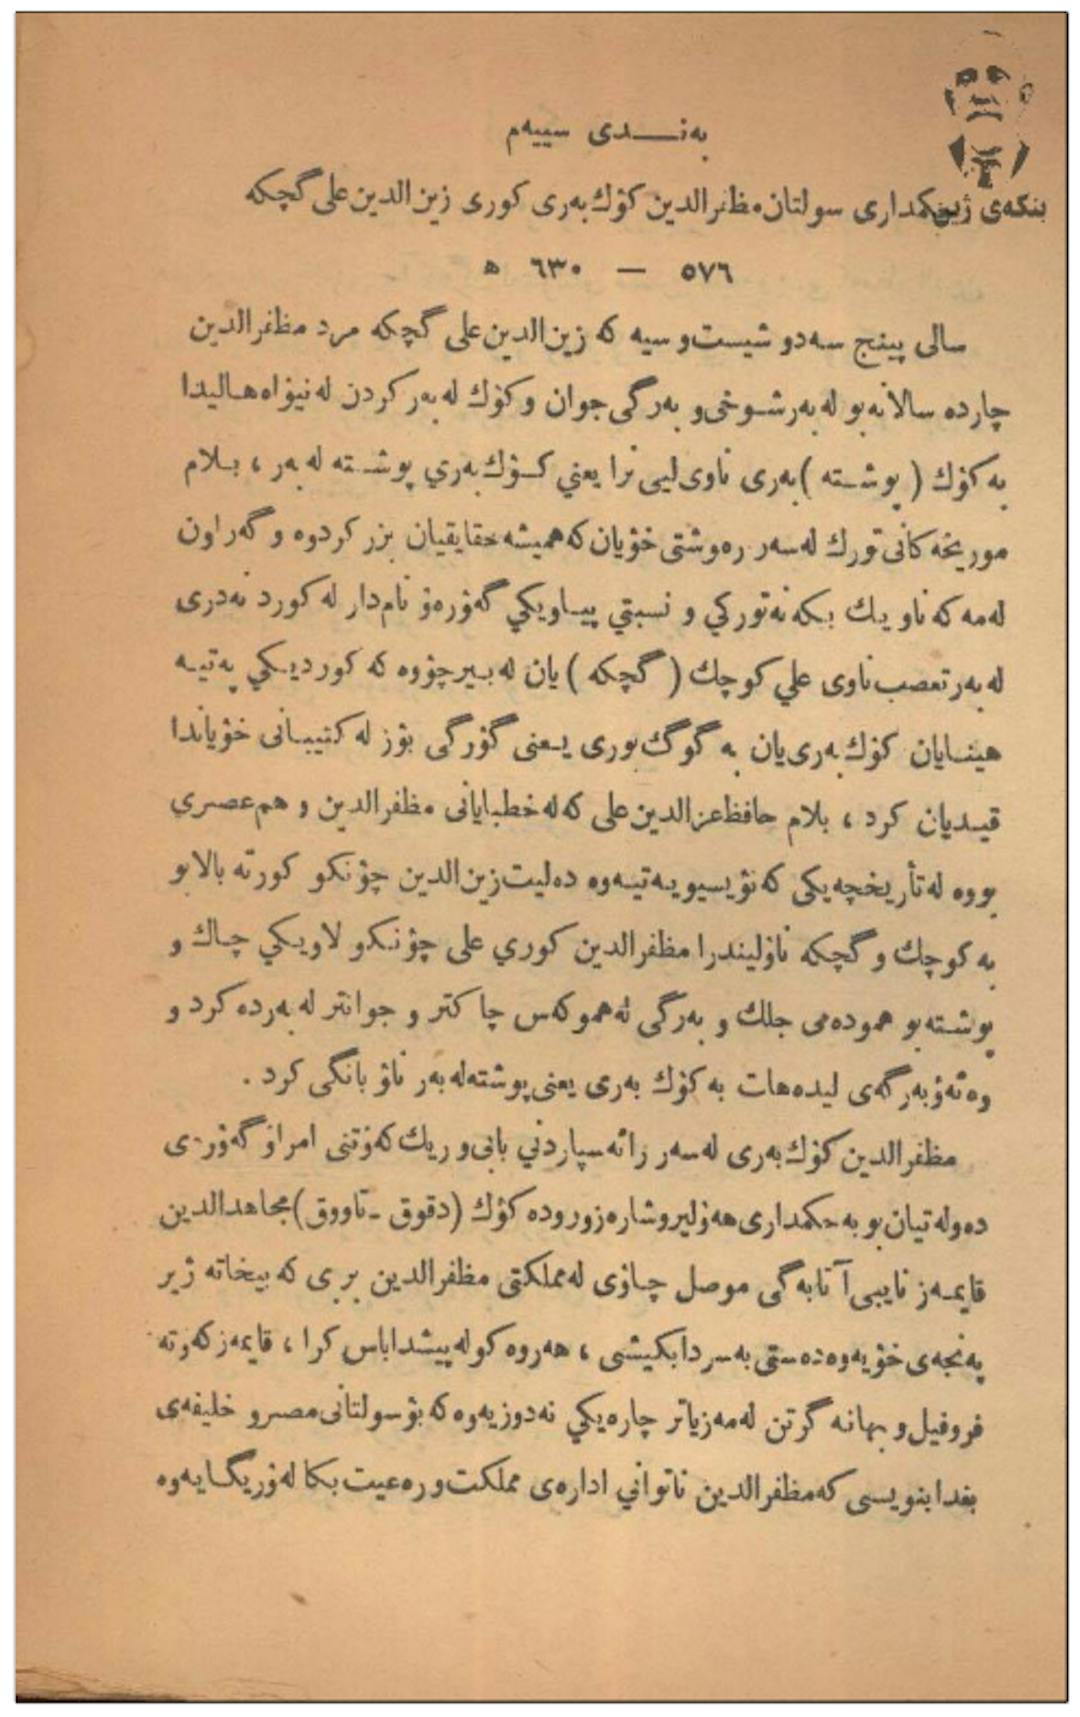 بەنـــدی سییەم
بنکەی ژین
حکمداری سولتان مظفرالدین کۆك بەری کوری زین‌الدین علی گچکە
٥٧٦ — ٦٣٠ ه
سالی پینج سەدو شیست‌و سیە کە زین‌الدین علی گچکە مرد مظفرالدین
چاردە سالانە بو لە بەر شـوخی‌و بەرگی جوان و کۆك لە بەر کردن لە نیۆاە هـالیدا
بە کۆك ( پوشـتە ) بەری ناوی لیی نرا یعني کـۆك بەري پوشـتە لە بەر ، بـلام
موریخە کانی تورك لە سەر رەوشتی خۆیان کە همیشە حقایقیان بزر کردوە و گەراون
لەمە کە ناو یـك بـکە نە تورکي و نسبتي پیـاویکي گەۆرەۆ نام‌دار لە کورد نەدری
لە بەر تعصب ناوی علي کوچك ( گچکە ) یان لە بـیر چۆوە کە کوردیـکي پەتیـە
هینـایان کۆك بەری یان بە گوگ بوری یـعنی گۆرگی بۆز لە کتیبـانی خۆیاندا
قیـدیان کرد ، بلام حافظ عزالدین علی کە لە خطبایانی مظفرالدین و هم عصري
بووە لە تأریخچەیکی کە نۆیسیویـەتیـەوە دەلیت زین‌الدین چۆنکو کورتە بالا بو
بە کوچك و گچکە ناۆلیندرا مظفرالدین کوري علی چۆنـکو لاویـکي چـاك و
پوشـتە بو همودەمی جلك و بەرگی لە همو کەس چا کتر و جوانتر لە بەردە کرد و
وە ئەۆ بەرگەی لیدەهات بە کۆك بەری یعنی پوشتە لە بەر ناۆ بانگی کرد .
مظفرالدین کۆك بەری لە سەر رائە سپاردني بابی‌و ریك کەۆتنی امراۆ گەۆرەی
دەولەتیان بو بە حکمداری هەۆلیروشارەزورودە کۆك (دقوق ـ تاووق) مجاهدالدین
قایمـەز نایبی آ تابەگی موصل چـاۆی لە مملکتی مظفرالدین بری کە بیخاتە ژیر
پەنجەی خۆیەوە دەستی بەسردا بکیشی ، هەروە کو لە پیشدا باس کرا ، قایمەز کەوتە
فروفیل‌و بهانە گرتن لەمە زیاتر چارەیکي نەدوزیەوە کە بۆ سولتانی مصرو خلیفەی
بغدا بنویسی کە مظفرالدین ناتواني ادارەی مملکت‌و رەعیت بکا لەۆ ریگـایەوە